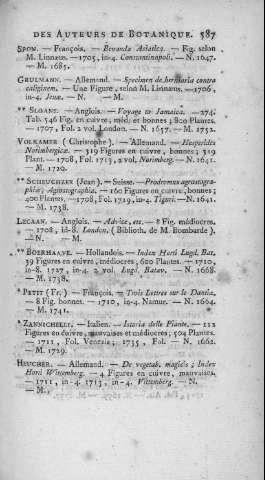 DES AUTEURS DE BOTANIQUE. 587
SPON. — François. — Bevanda Asiatica. — Fig. selon
M. Linnæus. — 1705, in-4. Constantinopoli. — N. 1647.
— M. 1685.
GRULMANN. — Allemand. — Specimen de herbaria contra
caliginem. — Une Figure, selon M. Linnæus. — 1706,
in-4. Jenæ. — N. — M.
** SLOANE. — Anglois. — Voyage to Jamaica. — 274.
Tab. 546 Fig. en cuivre, méd. et bonnes ; 800 Plantes.
— 1707, Fol. 2 vol. London. — N. 1657. — M. 1752.
VOLKAMER ( Christophe ). — Allemand. — Hesperides
Norimbergicæ. — 319 Figures en cuivre, bonnes ; 319
Plant. — 1708, Fol. 1713, 2 vol. Norimberg. — N. 1641.
— M. 1720.
** SCHEUCHZER (Jean). — Suisse. — Prodromus agrostogra-
phiæ ; Agrostographia. — 160 Figures en cuivre, bonnes ;
400 Plantes. — 1708, Fol. 1719, in-4. Tiguri. — N. 1641.
— M. 1738.
LECAAN. — Anglois. — Advice, etc. — 8 Fig. médiocres.
— 1708, in-8. London. (Biblioth. de M. Bombarde ).
— N. — M.
** BOERHAAVE. — Hollandois. — Index Horti Lugd. Bat.
39 Figures en cuivre, médiocres ; 600 Plantes. — 1710,
in-8. 1727, in-4. 2 vol. Lugd. Batav. — N. 1668.
— M. 1738.
* PETIT (Fr.) — François. — Trois Lettres sur le Dantia.
— 8 Fig. bonnes. — 1710, in-4. Namur. — N. 1664.
— M. 1741.
* ZANNICHELLI. — Italien. — Istoria delle Piante. — 312
Figures en cuivre, mauvaises et médiocres ; 504 Plantes.
— 1711, Fol. Venezia ; 1735, Fol. — N. 1662.
— M. 1729.
HEUCHER. — Allemand. — De vegetab. magicis ; Index
Horti Wittemberg. — 4 Figures en cuivre, mauvaises.
— 1711, in-4. 1713, in-4. Vittemberg. — N.
— M.